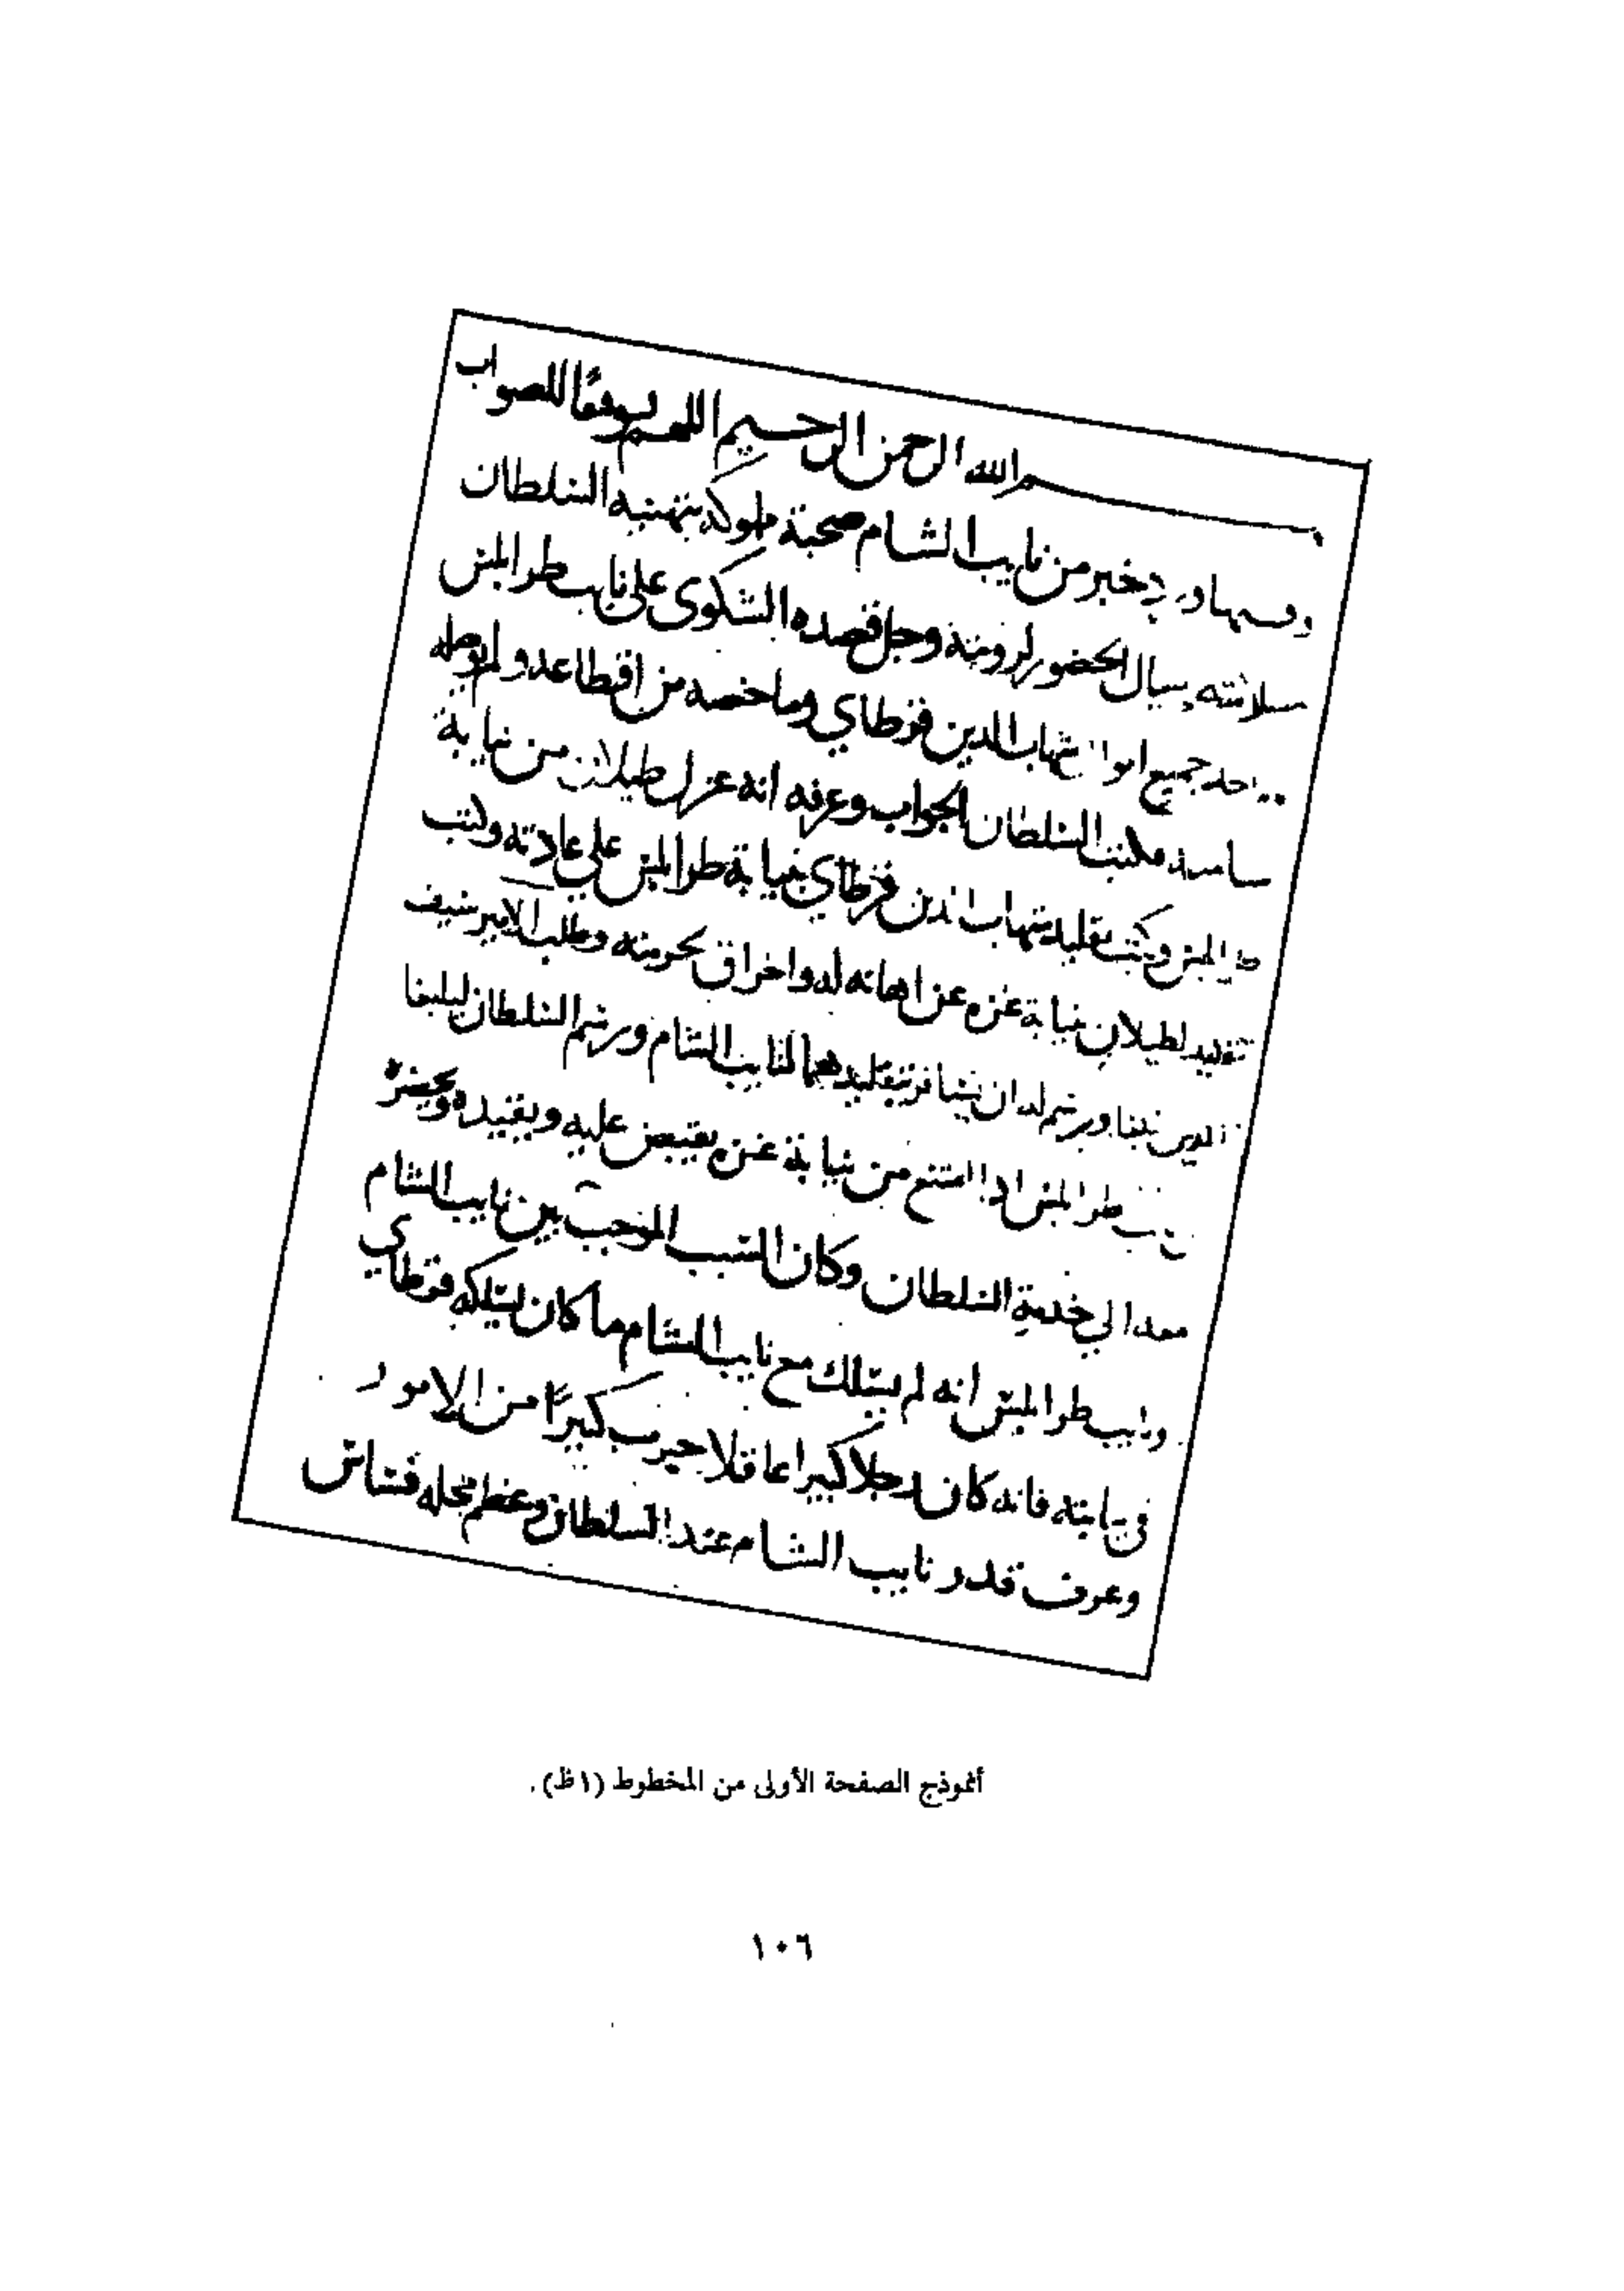 بسم الله الرحمن الرحيم اللهم وفقنا للصواب
وفيها ورد خبر من نايب الشام صحبة مملوكه بتهنية السلطان
بسلامته ويسال الحضور لرويته وجل قصده الشكوى على نايب طرابلس
احد جميع شهاب الدين قرطاي وما خصه من اقطاعه ولم يوصله
فكتب السلطان الجواب وعرفه انه عزل طينلان من نيابة
طرابلس وكتب تقليد شهاب الدين قرطاي نيابة طرابلس على عادته وكتب
تقليد لطينلان نيابة غزه عن اهانه له واخراق بحرمته وطلب الامير سيف
الدين ورسم له ان يسافر بتقليدهما لنايب الشام ورسم السلطان ليلبغا
طرابلس ادا امتنع من نيابة غزه يقبض عليه ويقيده ويحضره
معه الى خدمة السلطان وكان السبب الموجب بين نايب الشام
ونايب طرابلس انه لم يسلك مع نايب الشام ما كان يسلكه قرطاي
في نيابته فانه كان رجلا كبيرا عاقلا جرب كثيرًا من الامور
وعرف قدر نايب الشام عند السلطان وعظم محله
أنموذج الصفحة الأولى من المخطوط (١ظ) .
١٠٦